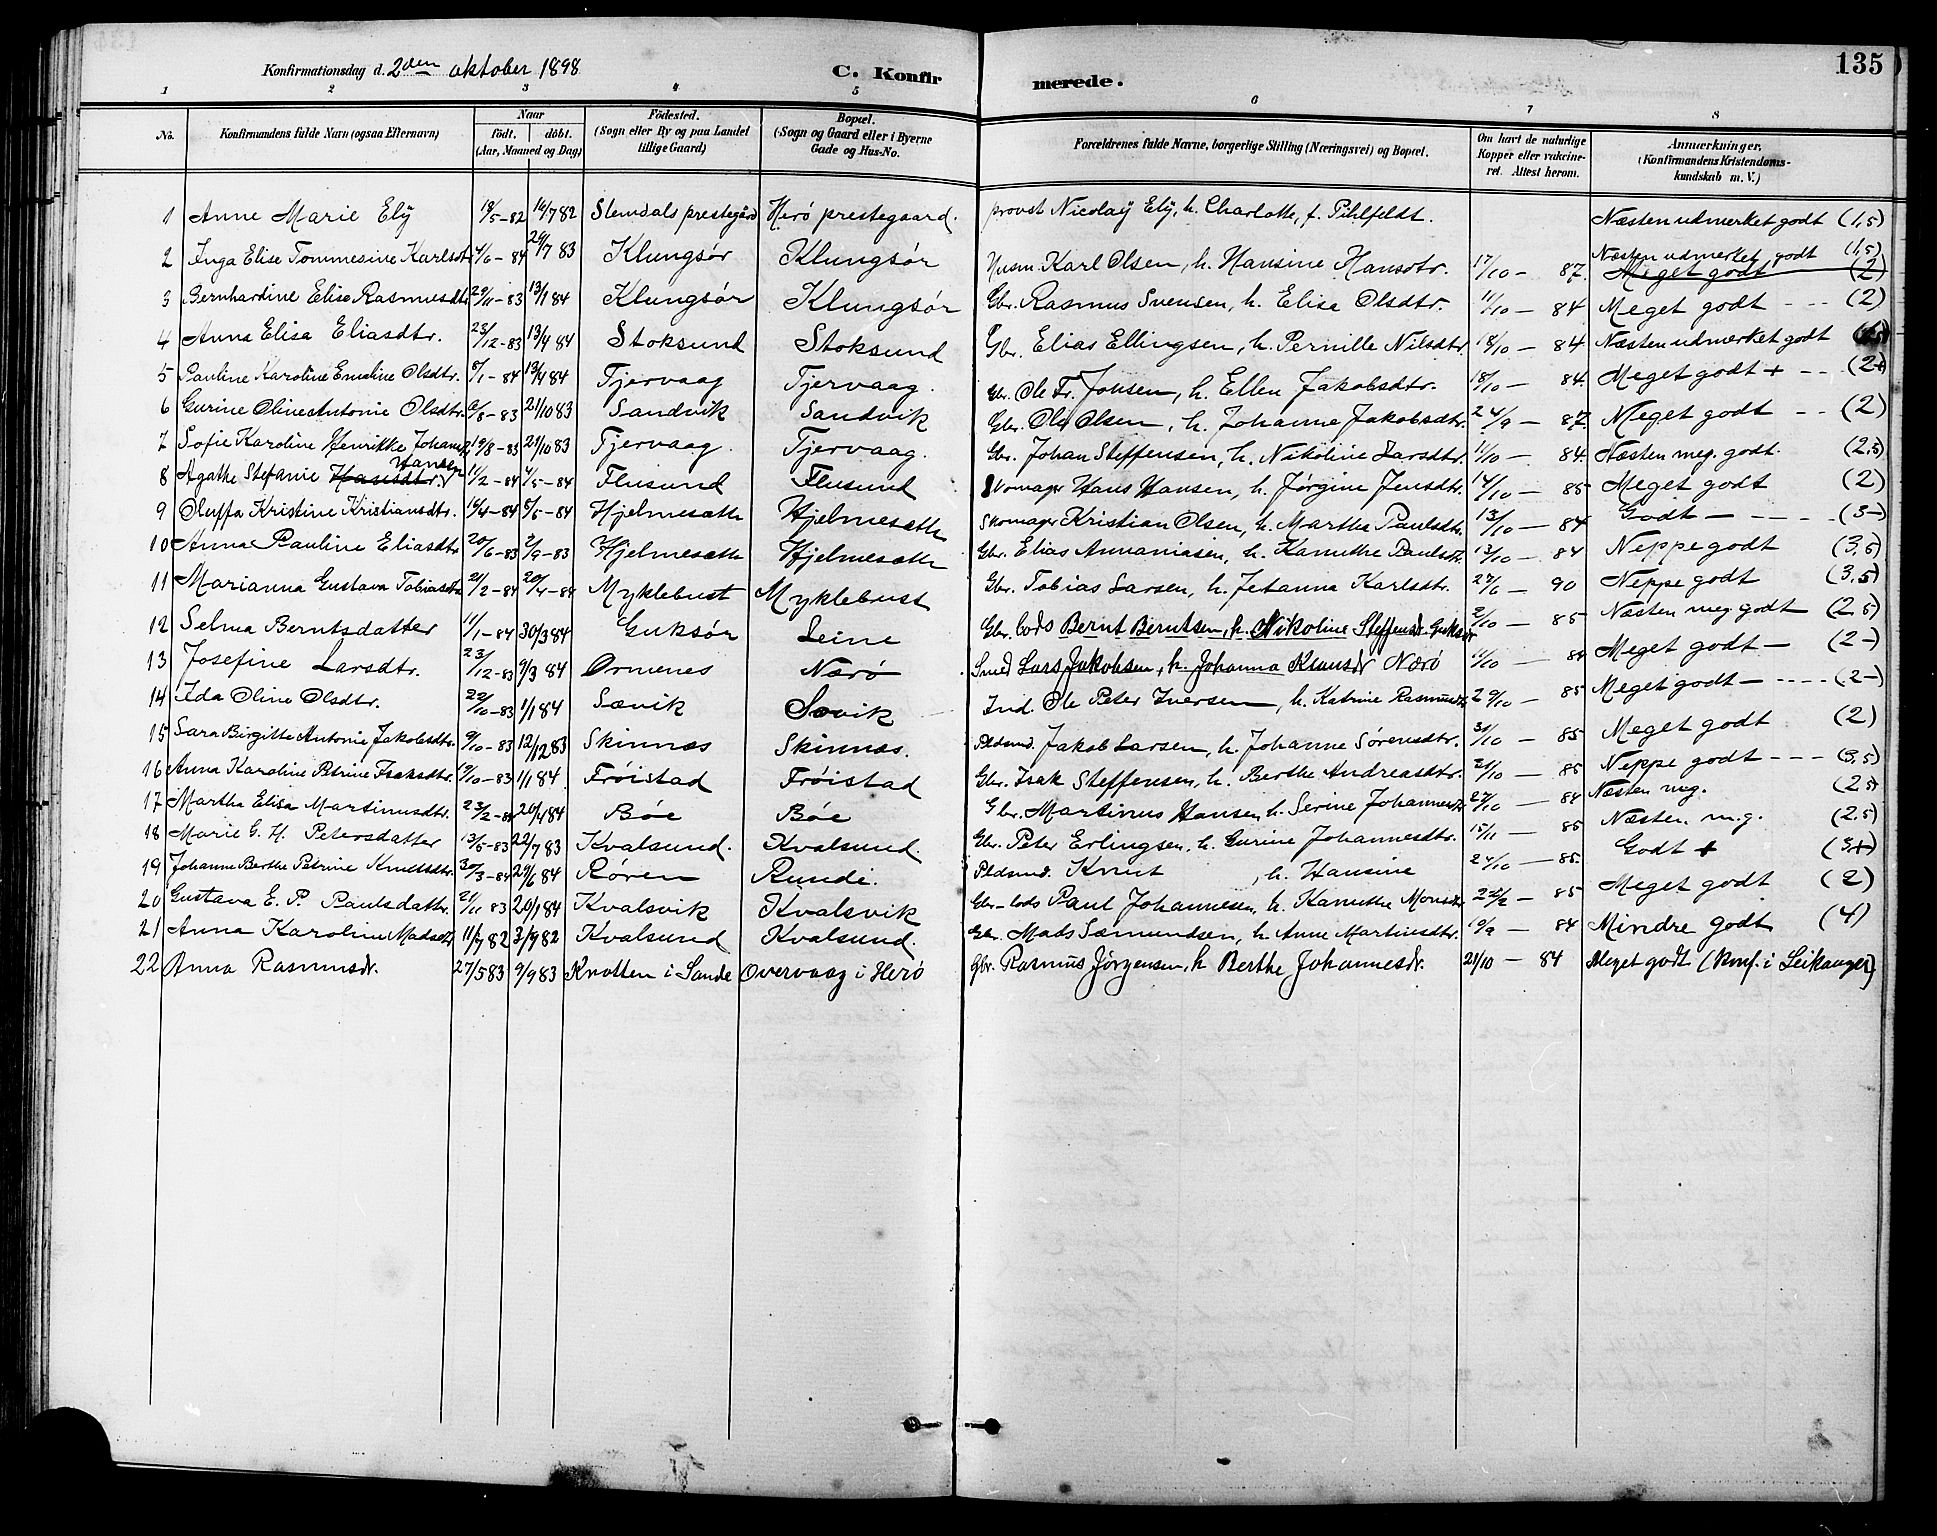 135
Konfirmationsdag d. 2den oktober 1898
C. Konfirmerede.
1 2 3 4 5 6 7 8
No. Konfirmandens fulde Navn (ogsaa Efternavn) Naar födt. döbt. (Aar, Maaned og Dag) Födested. (Sogn eller By og paa Landet tillige Gaard) Bopæl. (Sogn og Gaard eller i Byerne Gade og Hus-No. Forældrenes fulde Navne, borgerlige Stilling (Næringsvei) og Bopæl. Om havt de naturlige Kopper eller vakcineret. Attest herom. Anmærkninger. (Konfirmandens Kristendomskundskab m. V.)
1 Anne Marie Ely 18/5-82 16/7 82 Slemdals prestegård Herö prestegaard. provst Nicolaÿ Elÿ, h. Charlotte, f. Pihlfeldt. Næsten udmerket godt (1,5)
2 Inga Elise Tommesine Karlsdtr 4/6-84 29/7 83 Klungsör Klungsör Husm. Karl Olsen, h. Hansine Hansdtr. 17/10 - 87. Næsten udmerket godt (1,5) Meget godt (2)
3 Bernhardine Elise Rasmusdtr 29/11-83 13/1 84 Klungsör Klungsör Gbr. Rasmus Svensen, h. Elise Olsdtr. 11/10 - 84 Meget godt - - - (2)
4 Anna Elisa Eliasdtr. 23/12-83 13/4 84 Stoksund Stoksund Gbr. Elias Ellingsen, h. Pernille Nilsdtr. 18/10 - 84 Næsten udmerket godt
5 Pauline Karoline Emeline Olsdtr. 8/1-84 13/4 84 Tjervaag Tjervaag. Gbr. Ole Fr. Jonsen, h. Ellen Jakobsdtr. 18/10 - 84. Meget godt + - - (2+)
6 Gurine Oline Antonie Olsdtr. 9/8-83 21/10 83 Sandvik Sandvik Gbr. Ole Olsen, h. Johanne Jakobsdtr. 24/9 - 87. Meget godt - - (2)
7 Sofie Karoline Henrikke Johansd 19/8-83 21/10 83 Tjervaag. Tjervaag. Gbr. Johan Steffensen, h. Nikoline Larsdtr. 11/10 - 84. Næsten meg. godt. (2,5)
8 Agathe Stefanie Hansdtr. Hansen 11/2-84 4/5-84 Flusund Flusund Skomager Hans Hansen, h. Jörgine Jensdtr. 14/10 - 85 Meget godt (2)
9 Oluffa Kristine Kristiansdtr. 14/4-84 8/5-84 Hjelmesæth Hjelmesæth Skomager Kristian Olsen, h. Marthe Paulsdtr. 13/10 - 84 Godt - - - - - (3-)
10 Anna Pauline Eliasdtr 20/6-83 2/9-83 Hjelmesæth Hjelmesæth Gbr. Elias Annaniasen, h. Kanuthe Paulsdtr 13/10 - 84 Neppe godt (3,5)
11 Marianna Gustava Tobiasdtr 21/2-84 20/4-84 Myklebust Myklebust Gbr. Tobias Larsen, h. Jetanna Karlsdtr. 27/6 - 90 Neppe godt (3,5)
12 Selma Berntsdatter 11/1-84 30/3 84 Guksör Leine Gbr. Cods Bernt Berntsen, h. Nikoline Steffensdr. Guksör 2/10 - 85 Næsten meg. godt (2,5)
13 Josefine Larsdtr. 23/12-83 9/3 84 Ormenes Nærö Smed Lars Jakobsen, h. Johanna Klausdr Nærö 11/10 - 84 Meget godt - (2-)
14 Ida Oline Olsdtr. 22/10-83 1/1 84 Sævik Sævik Ind. Ole Peter Iversen, h. Katrine Rasmusdtr 29/10 - 85 Meget godt - - - - - (2-)
15 Sara Birgitte Antonie Jakobsdtr. 9/10-83 12/12 83 Skinnæs Skinnæs. Pldsmd. Jakob Larsen, h. Johanne Sörensdtr. 31/10 - 85 Meget godt (2)
16 Anna Karoline Petrine Isaksdtr. 19/10-83 1/1 84 Fröistad Fröistad Gbr. Isak Steffensen, h. Berthe Andreasdtr. 21/10 - 85 Neppe godt - - - (3,5)
17 Martha Elisa Martinusdtr. 23/2-84 20/4 84 Böe Böe Gbr. Martinus Hansen h. Serine Johannesdtr 27/10 - 84 Næsten meg. (2,5)
18 Marie G. H. Petersdatter 13/5-83 22/7 83 Kvalsund. Kvalsund. Gbr. Peter Erlingsen, h. Gurine Johannesdtr. 15/11 - 85 Næsten. m.g. (2,5)
19 Johanne Berthe Petrine Knudsdtr 30/3-84 29/6 84 Rören Rundi. Pldsmd. Knut , h. Hansine 24/10 - 85. Godt + (3+)
20 Gustava E. P. Paulsdattr. 21/11 83 20/1 84 Kvalsvik Kvalsvik Gbr-Cods Paul Johannesen, h. Kanuthe Monsdtr 22/2 - 85 Meget godt (2)
21 Anna Karoline Madsdtr 11/7 82 3/9 82 Kvalsund Kvalsund. Gbr. Mads Sæmundsen, h. Anne Martinusdtr. 19/9 - 84 Mindre godt (4)
22 Anna Rasmusdr. 27/5 83 9/9 83 Knotten i Sande Overvaag i Herö Gbr. Rasmus Jörgensen, h Berthe Johannesdr. 21/10 - 84 Meget godt (Konf. i Leikanger)